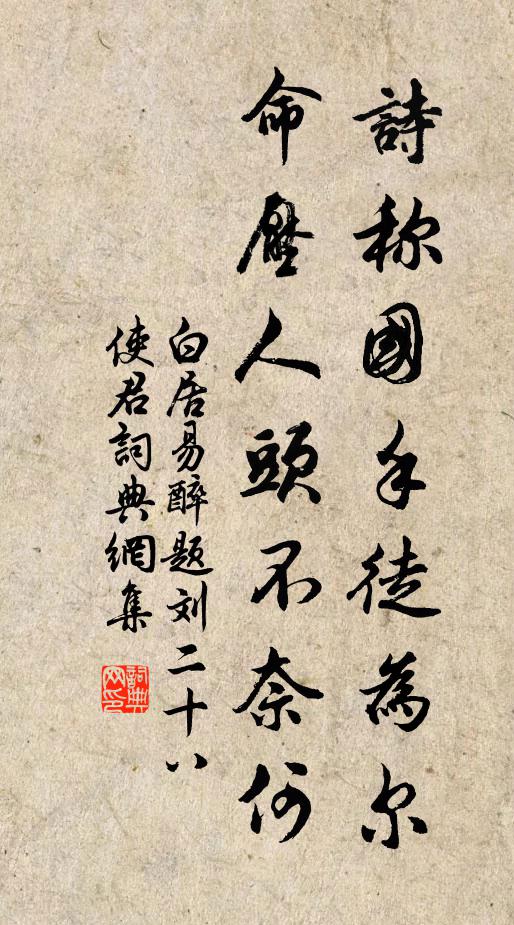 詩称國手徒為尔
命壓人頭不奈何
白居易醉题刘二十八
使君詞典網集
詞典
网印